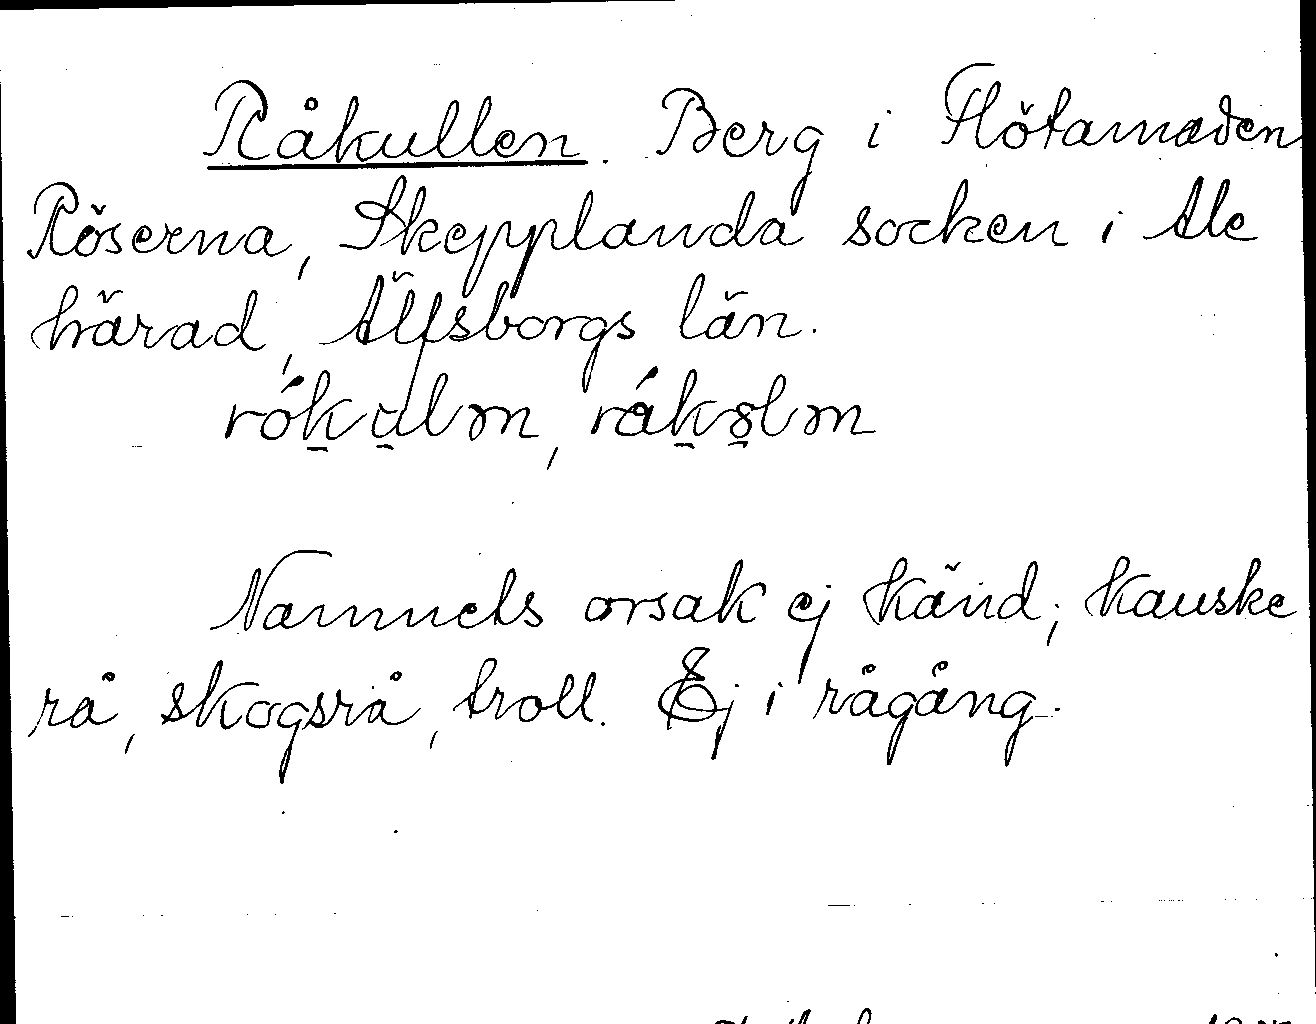 Råkullen. Berg i Flötamaden
Röserna, Skepplanda socken i Ale
härad, Älfsborgs län.
rókulm, råkslm
Namnets orsak ej känd; kanske
rå, skogsrå, troll. Ej i rågång.